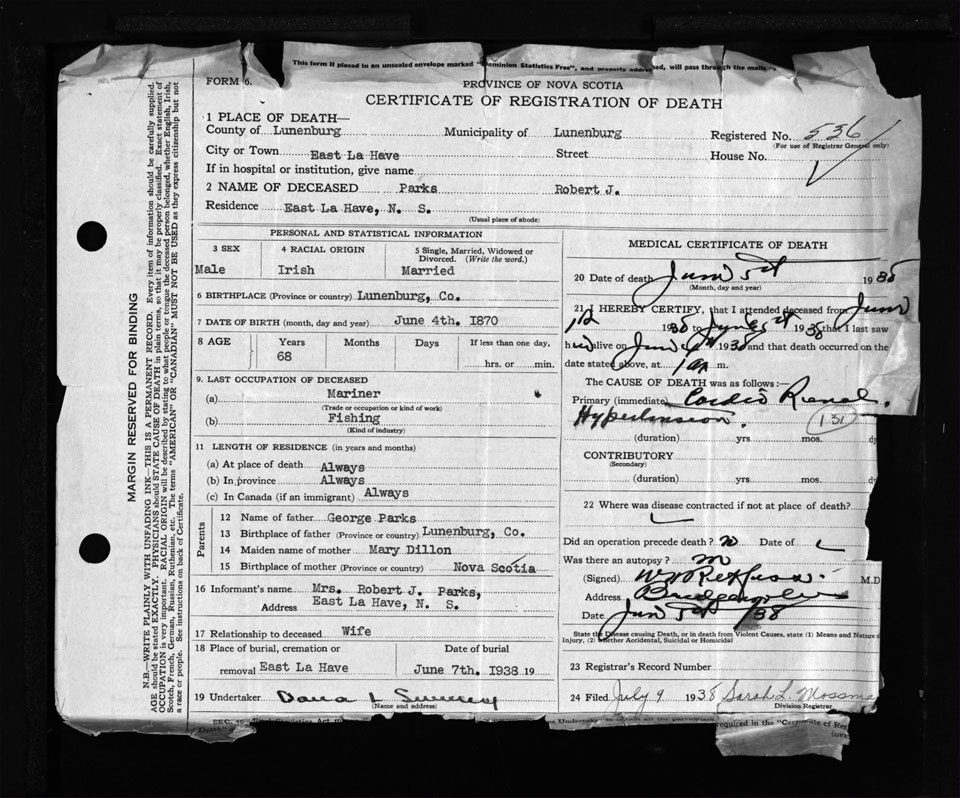 This form if placed in an unsealed envelope marked "Dominion Statistics Free", and properly addressed, will pass through the mails
FORM 6.
PROVINCE OF NOVA SCOTIA
CERTIFICATE OF REGISTRATION OF DEATH
1 PLACE OF DEATH—
County of Lunenburg Municipality of Lunenburg Registered No. 536
(For use of Registrar General only)
City or Town East La Have Street House No.
If in hospital or institution, give name
2 NAME OF DECEASED Parks Robert J.
Residence East La Have, N. S.
(Usual place of abode)
PERSONAL AND STATISTICAL INFORMATION
3 SEX 4 RACIAL ORIGIN 5 Single, Married, Widowed or Divorced. (Write the word.)
Male Irish Married
6 BIRTHPLACE (Province or country) Lunenburg, Co.
7 DATE OF BIRTH (month, day and year) June 4th. 1870
8 AGE Years Months Days If less than one day,
68 hrs. or min.
9. LAST OCCUPATION OF DECEASED
(a) Mariner
(Trade or occupation or kind of work)
(b) Fishing
(Kind of industry)
11 LENGTH OF RESIDENCE (in years and months)
(a) At place of death Always
(b) In province Always
(c) In Canada (if an immigrant) Always
Parents
12 Name of father George Parks
13 Birthplace of father (Province or country) Lunenburg, Co.
14 Maiden name of mother Mary Dillon
15 Birthplace of mother (Province or country) Nova Scotia
16 Informant's name Mrs. Robert J. Parks,
Address East La Have, N. S.
17 Relationship to deceased Wife
18 Place of burial, cremation or Date of burial
removal East La Have June 7th. 1938 19
19 Undertaker Dana L Sweeney
(Name and address)
MEDICAL CERTIFICATE OF DEATH
20 Date of death June 5th 1938
(Month, day and year)
21 I HEREBY CERTIFY, that I attended deceased from June
1938 to June 5th 1938 that I last saw
h alive on June 1938 and that death occurred on the
date stated above, at 1 a m.
The CAUSE OF DEATH was as follows:—
Primary (immediate) Cardio Renal.
Hypertension. 131
(duration) yrs. mos. dy
CONTRIBUTORY
(Secondary)
(duration) yrs. mos.
22 Where was disease contracted if not at place of death?
Did an operation precede death? no Date of
Was there an autopsy? no
(Signed) M.D
Address Bridgewater
Date June 5th /38
State the Disease causing Death, or in death from Violent Causes, state (1) Means and Nature of
Injury, (2) Whether Accidental, Suicidal or Homicidal
23 Registrar's Record Number
24 Filed July 9 1938 Sarah L. Mossma
Division Registrar
MARGIN RESERVED FOR BINDING
N.B.—WRITE PLAINLY WITH UNFADING INK—THIS IS A PERMANENT RECORD. Every item of information should be carefully supplied.
AGE should be stated EXACTLY. PHYSICIANS should STATE CAUSE OF DEATH in plain terms, so that it may be properly classified. Exact statement of
OCCUPATION is very important. RACIAL ORIGIN will be described by stating to what people or tongue the deceased person belonged, whether English, Irish,
Scotch, French, German, Russian, Ruthenian, etc. The terms "AMERICAN" OR "CANADIAN" MUST NOT BE USED as they express citizenship but not
a race or people. See instructions on back of Certificate.
required in the "Certificate of Reg